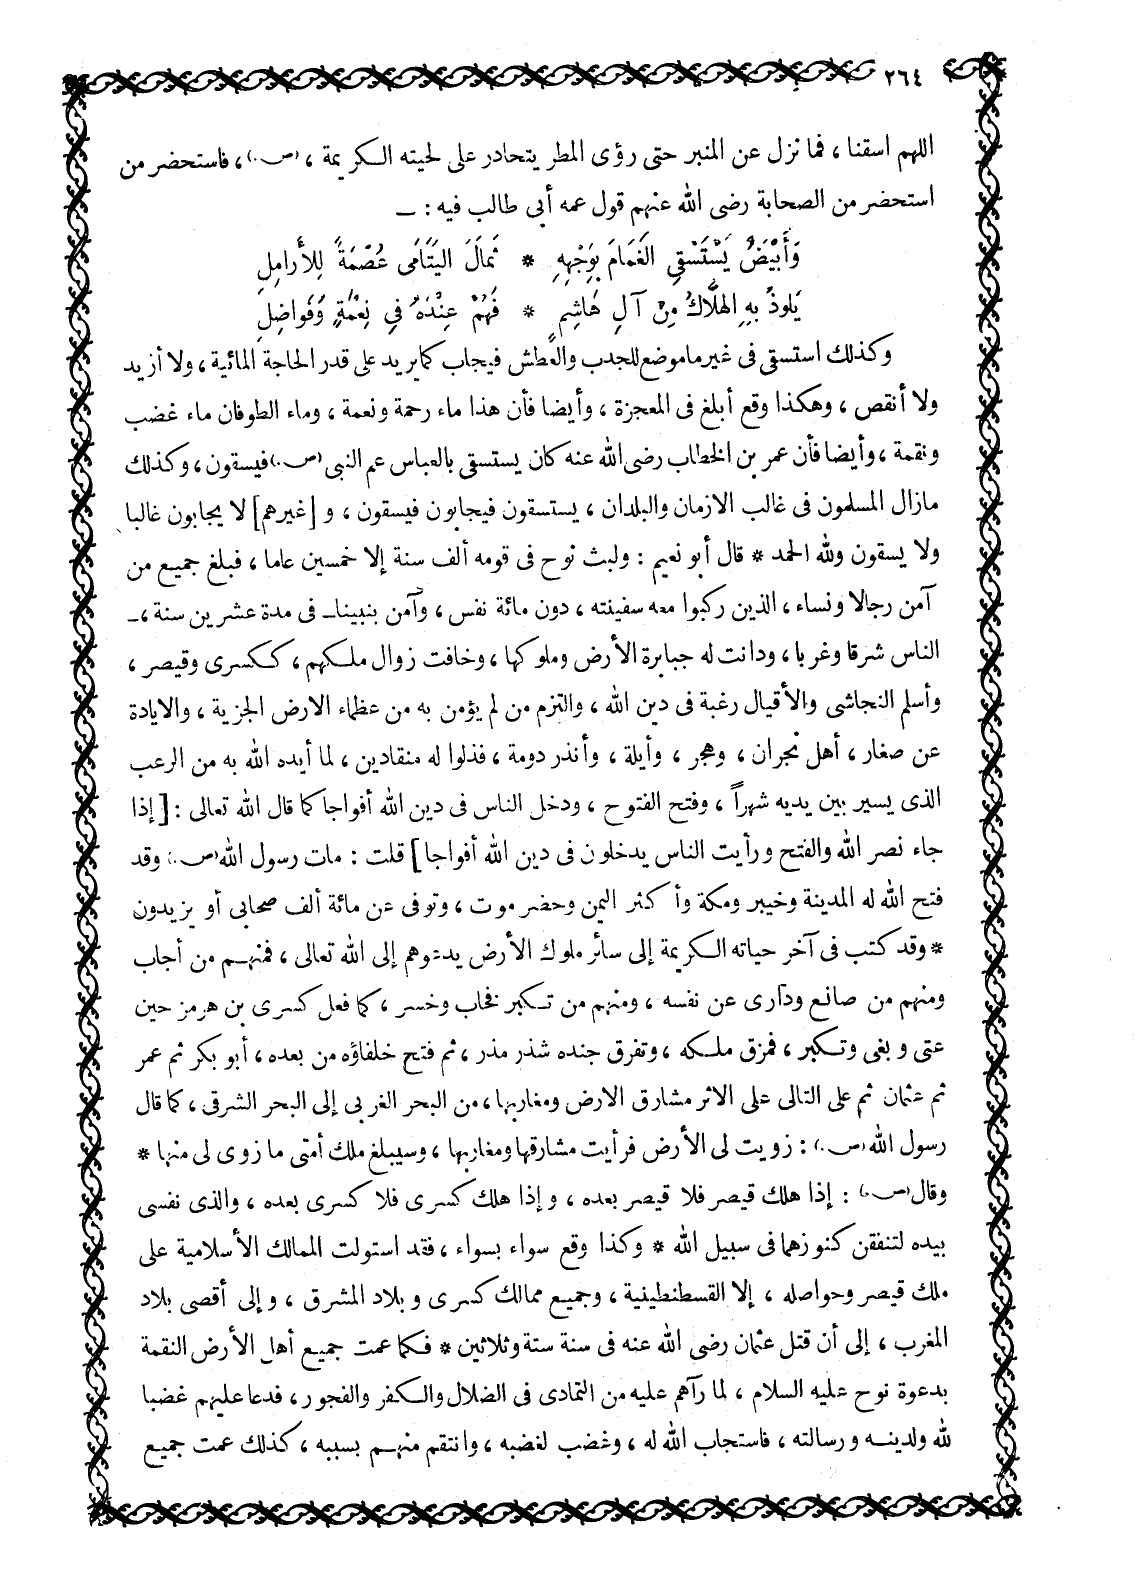 ٢٦٤
اللهم اسقنا ، فما نزل عن المنبر حتى رؤى المطر يتحادر على لحيته الكريمة ، (ص.) ، فاستحضر من
استحضر من الصحابة رضى الله عنهم قول عمه أبى طالب فيه : ــ
وَأَبْيَضُ يَسْتَسْقِي الغَمَامَ بِوَجْهِهِ * ثَمالَ اليَتَامَى عُصْمَةً لِلأَرامِلِ
يَلوذُ بهِ الهلَّاكُ مِنْ آلِ هَاشِمٍ * فَهُمْ عِنْدَهُ فِي نِعْمَةٍ وَفَواضِلِ
وكذلك استسقى فى غير ماموضع للجدب والعطش فيجاب كما يريد على قدر الحاجة المائية ، ولا أزيد
ولا أنقص ، وهكذا وقع أبلغ فى المعجزة ، وأيضا فأن هذا ماء رحمة ونعمة ، وماء الطوفان ماء غضب
ونقمة ، وأيضا فأن عمر بن الخطاب رضى الله عنه كان يستسقى بالعباس عم النبى (ص.) فيسقون ، وكذلك
مازال المسلمون فى غالب الازمان والبلدان ، يستسقون فيجابون فيسقون ، و [غيرهم] لا يجابون غالبا
ولا يسقون ولله الحمد * قال أبو نعيم : ولبث نوح فى قومه ألف سنة إلا خمسين عاما ، فبلغ جميع من
آمن رجالا ونساء ، الذين ركبوا معه سفينته ، دون مائة نفس ، وآمن بنبينا ــ فى مدة عشرين سنة ، ــ
الناس شرقا وغربا ، ودانت له جبابرة الأرض وملوكها ، وخافت زوال ملكهم ، ككسرى وقيصر ،
وأسلم النجاشى والأقيال رغبة فى دين الله ، والتزم من لم يؤمن به من عظماء الارض الجزية ، والايادة
عن صغار ، أهل نجران ، وهجر ، وأيلة ، وأنذر دومة ، فذلوا له منقادين ، لما أيده الله به من الرعب
الذى يسير بين يديه شهراً ، وفتح الفتوح ، ودخل الناس فى دين الله أفواجا كما قال الله تعالى : [ إذا
جاء نصر الله والفتح ورأيت الناس يدخلون فى دين الله أفواجا ] قلت : مات رسول الله (ص.) وقد
فتح الله له المدينة وخيبر ومكة وأكثر اليمن وحضر موت ، وتوفى عن مائة ألف صحابى أو يزيدون
* وقد كتب فى آخر حياته الكريمة إلى سائر ملوك الأرض يدعوهم إلى الله تعالى ، فمنهم من أجاب
ومنهم من صانع ودارى عن نفسه ، ومنهم من تكبر فخاب وخسر ، كما فعل كسرى بن هرمز حين
عتى وبغى وتكبر ، فمزق ملكه ، وتفرق جنده شذر مذر ، ثم فتح خلفاؤه من بعده ، أبو بكر ثم عمر
ثم عثمان ثم على التالى على الاثر مشارق الارض ومغاربها ، من البحر الغربى إلى البحر الشرقى ، كما قال
رسول الله (ص.) : زويت لى الأرض فرأيت مشارقها ومغاربها ، وسيبلغ ملك أمتى ما زوى لى منها *
وقال (ص.) : إذا هلك قيصر فلا قيصر بعده ، وإذا هلك كسرى فلا كسرى بعده ، والذى نفسى
بيده لتنفقن كنوزهما فى سبيل الله * وكذا وقع سواء بسواء ، فقد استولت الممالك الأسلامية على
ملك قيصر وحواصله ، إلا القسطنطينية ، وجميع ممالك كسرى وبلاد المشرق ، وإلى أقصى بلاد
المغرب ، إلى أن قتل عثمان رضى الله عنه فى سنة ستة وثلاثين * فكما عمت جميع أهل الأرض النقمة
بدعوة نوح عليه السلام ، لما رآهم عليه من التمادى فى الضلال والكفر والفجور ، فدعا عليهم غضبا
لله ولدينه ورسالته ، فاستجاب الله له ، وغضب لغضبه ، وانتقم منهم بسببه ، كذلك عمت جميع